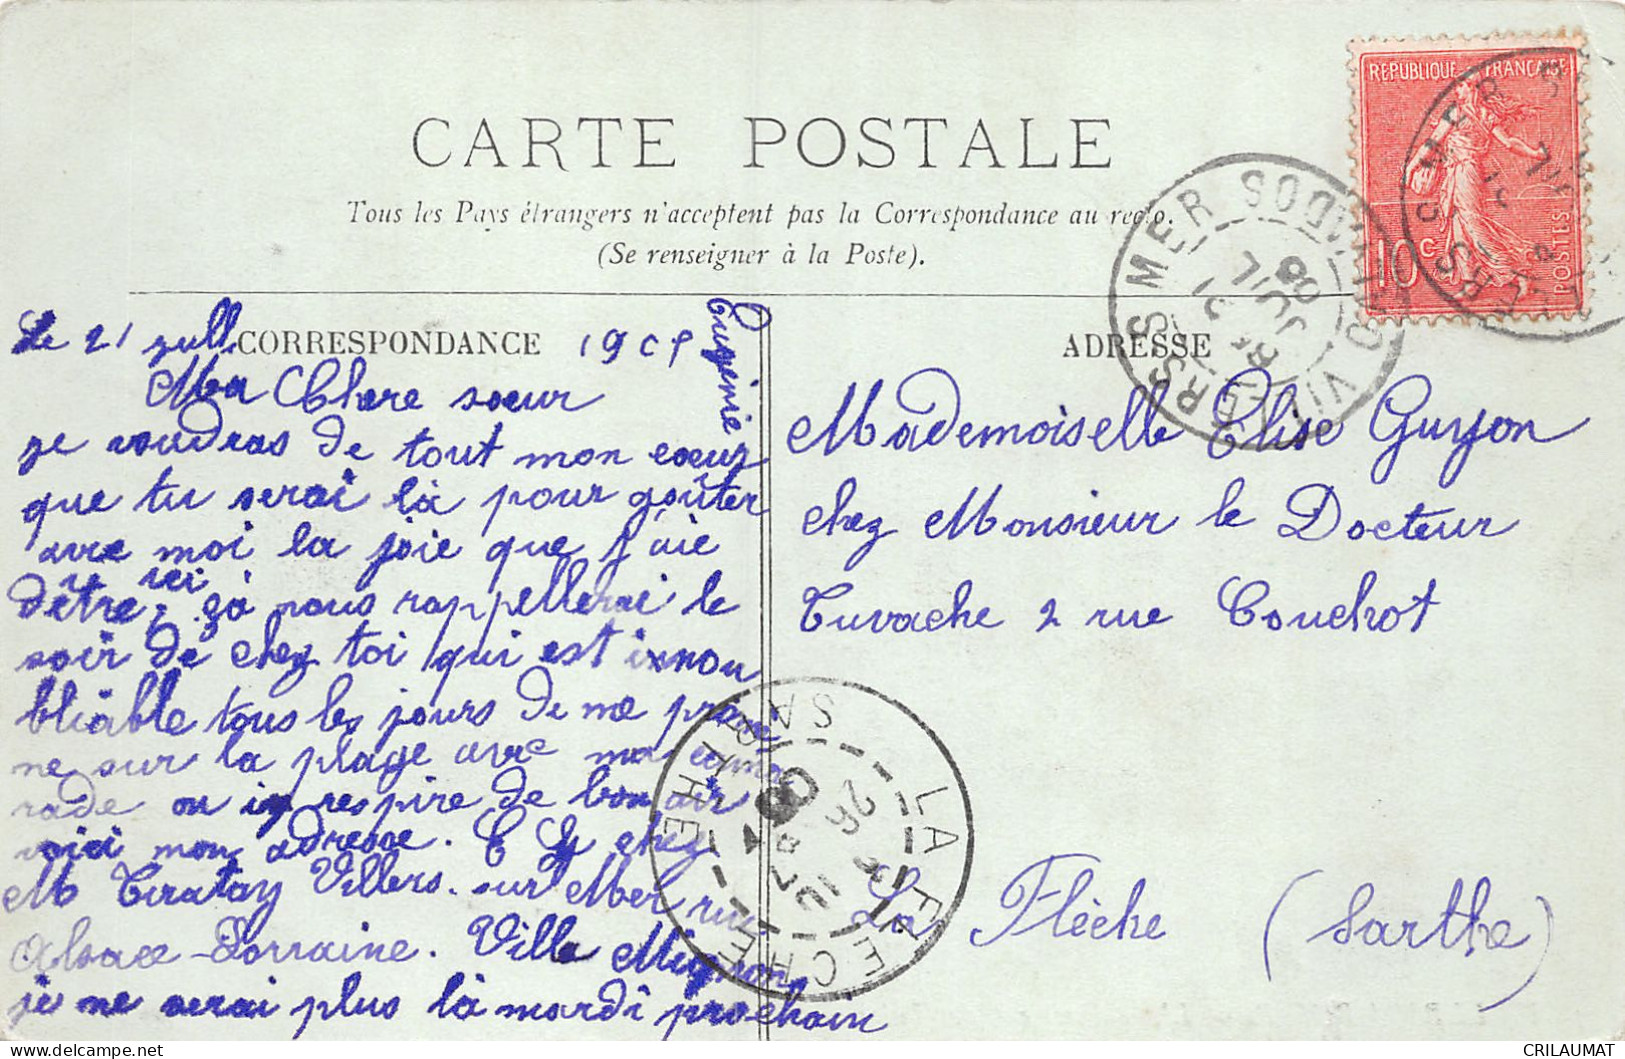 CARTE POSTALE
Tous les Pays étrangers n'acceptent pas la Correspondance au recto.
(Se renseigner à la Poste).
REPUBLIQUE FRANCAISE
10 c
POSTES
CORRESPONDANCE
ADRESSE
Le 21 jull
Ma Chere soeur
je voudras de tout mon coeur
que tu serai là pour goûter
avec moi la joie que j'aie
d'être ici ça nous rappellerai le
soir de chez toi qui est innou
bliable tous les jours de me prome
ne sur la plage avec ma cama
rade on y respire de bon air
voici mon adresse. E G chez
M Tiratay Villers sur Mer rue
Alsace-Lorraine. Villa Mignon
je ne serai plus là mardi prochain
Eugenie
Mademoiselle Elise Guyon
chez Monsieur le Docteur
Tuvache 2 rue Couchot
La Flèche (Sarthe)
VILLERS S MER CALVADOS
LA FLECHE
SARTHE
CRILAUMAT